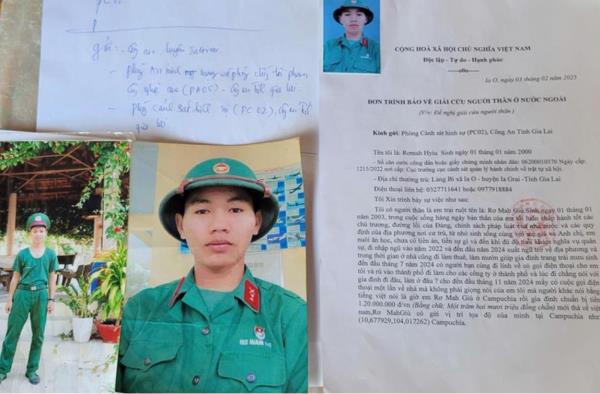 PC02
Gửi: - Công an huyện Ia Grai
- phòng An ninh mạng và phòng chống tội phạm
công nghệ cao (PA05) - Công an tỉnh gia lai
- phòng cảnh sát hình sự (PC02), Công an tỉnh
gia lai
CỘNG HOÀ XÃ HỘI CHỦ NGHĨA VIỆT NAM
Độc lập - Tự do - Hạnh phúc
Ia O, ngày 03 tháng 02 năm 2025
ĐƠN TRÌNH BÁO VỀ GIẢI CỨU NGƯỜI THÂN Ở NƯỚC NGOÀI
(V/v: Đề nghị giải cứu người thân)
Kính gửi: Phòng Cảnh sát hình sự (PC02), Công An Tỉnh Gia Lai
Tôi tên là: Romah Hyiu Sinh ngày 01 tháng 01 năm 2000
- Số căn cước công dân hoặc giấy chứng minh nhân dân: Ngày cấp:
nơi cấp: Cục trưởng cục cảnh sát quản lý hành chính về trật tự xã hội
- Địa chỉ thường trú: Làng Bi xã Ia O - huyện Ia Grai -Tỉnh Gia Lai
Điện thoại liên hệ: 0327711641 hoặc 0977918884
Tôi Xin trình bày vụ việc như sau:
Tôi có người thân là em trai ruột tên là: Rơ Mah Giú Sinh ngày 01 tháng 01
năm 2003, trong cuộc sống hàng ngày bản thân của em tôi luôn chấp hành tốt các
chủ trương, đường lối của Đảng, chính sách pháp luật của nhà nước và các quy
định của địa phương nơi cư trú, từ nhỏ sinh sống cùng với bố mẹ và Anh chị, em
nuôi ăn học, chưa có tiền án, tiền sự gì và đến khi đủ độ tuổi nghĩa vụ quân
sự, đi nhập ngũ vào năm 2022 và đến đầu năm 2024 xuất ngũ trở về địa phương và
trong thời gian ở nhà cũng đi làm thuê, làm mướn giúp gia đình trang trải mưu sinh
đến đầu tháng 7 năm 2024 có người bạn cùng đi lính về có gọi điện thoại cho em
tôi và rủ vào thành phố đi làm cho các công ty ở thành phố và lúc đi chẳng nói với
gia đình đi đâu, làm ở đâu ? cho đến tháng 11 năm 2024 mấy có cuộc gọi điện
thoại một lần về nhà mà không phải giọng nói của em tôi mà người khác nói bằng
tiếng việt nói là giờ em Rơ Mah Giú ở Campuchia rồi gia đình chuẩn bị tiền
1.20.000.000 đ/vn (Bằng chữ: Một trăm hai mươi triệu đồng chẵn) mới thả về việt
nam,Rơ MahGiú có gửi vị trí tọa độ của mình tại Campuchia như
(10,677929,104,017262) Campuchia.